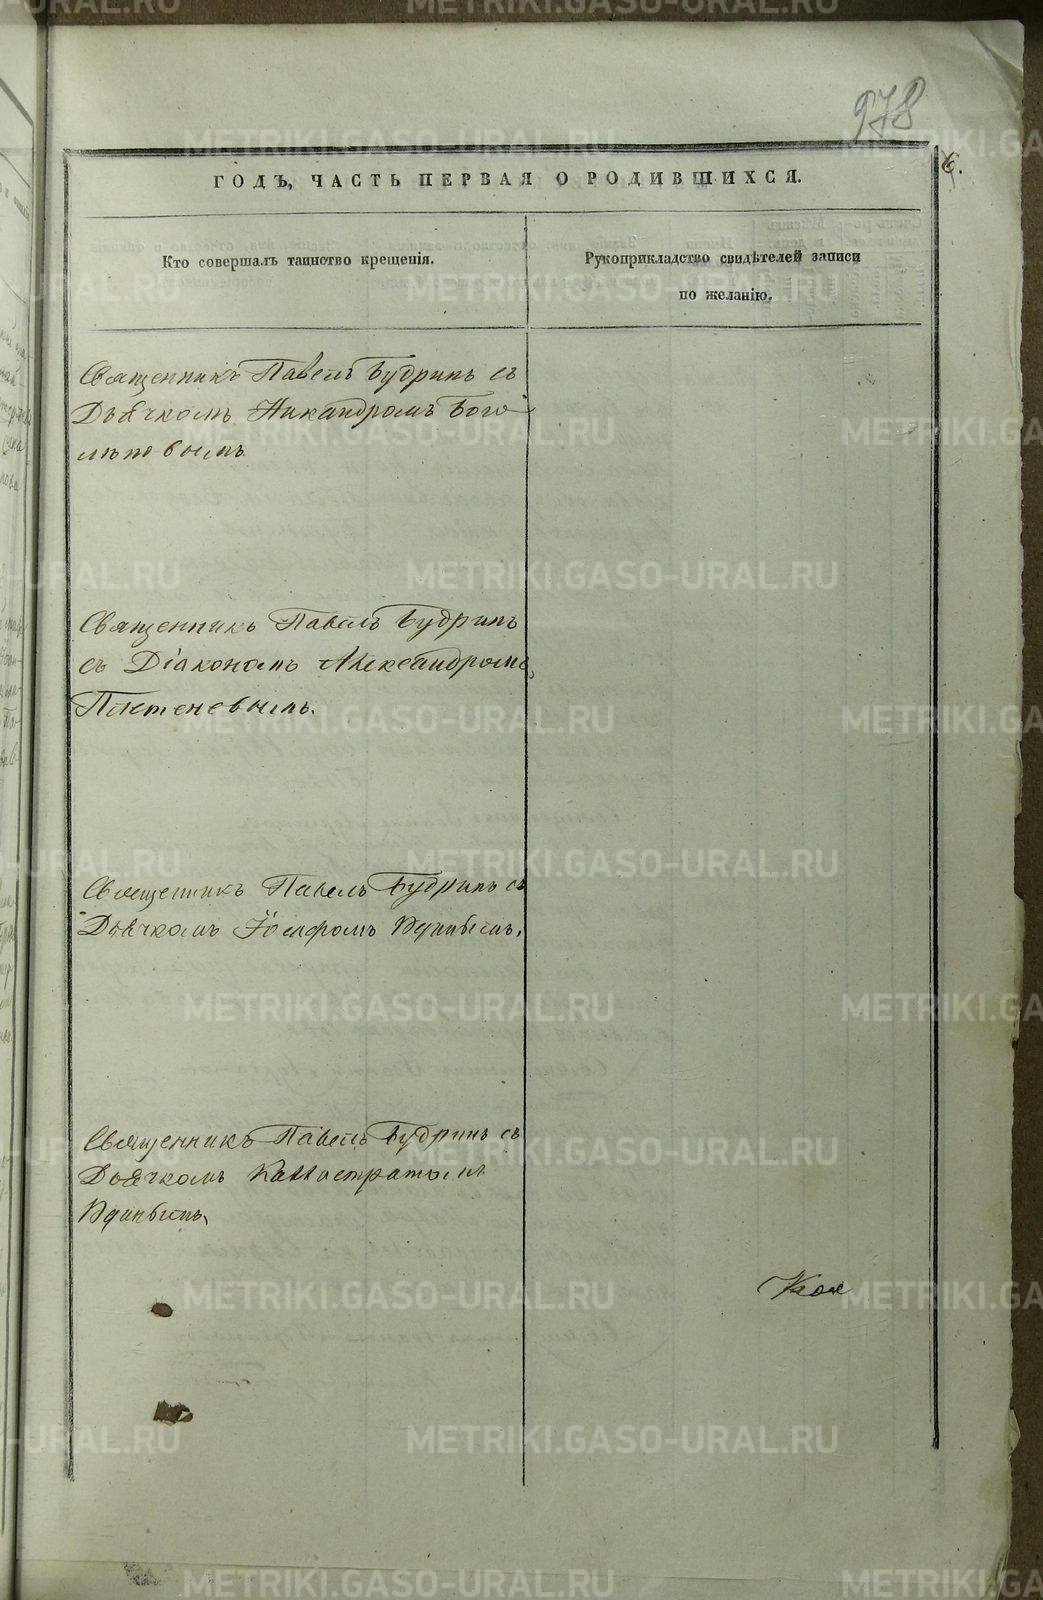 978
6.
ГОДЪ, ЧАСТЬ ПЕРВАЯ О РОДИВШИХСЯ.
Кто совершалъ таинство крещенія.
Рукоприкладство свидѣтелей записи
по желанію.
Священникъ Павелъ Будринъ съ
Дьячкомъ Никандромъ Бого-
мѣтовымъ
Священникъ Павелъ Будринъ
съ Діакономъ Александромъ
Плетеневымъ.
Священникъ Павелъ Будринъ съ
Дьячкомъ Іосифомъ
Священникъ Павелъ Будринъ съ
Дьячкомъ
METRIKI.GASO-URAL.RU